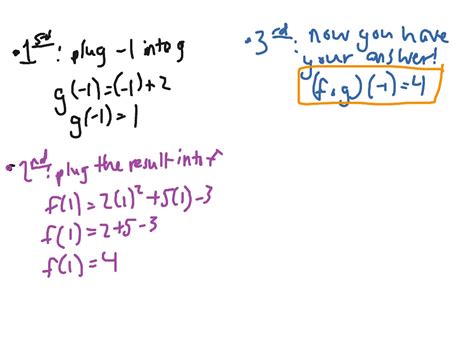 • 1st: plug -1 into g
g(-1)=(-1)+2
g(-1)=1
• 2nd: plug the result into f
f(1)=2(1)²+5(1)-3
f(1)=2+5-3
f(1)=4
• 3rd: now you have
your answer!
(f∘g)(-1)=4